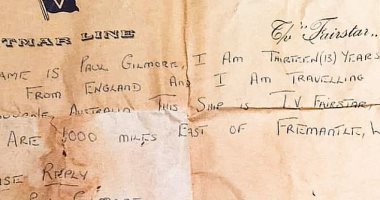 V
TMAR LINE T/v "Fairstar..
AME IS PAUL GILMORE, I AM THIRTEEN (13) YEARS
FROM ENGLAND AND I AM TRAVELLING
AUSTRALIA THIS SHIP IS T.V FAIRSTAR,
ARE 1000 MILES EAST OF FREMANTLE, W
ASE REPLY